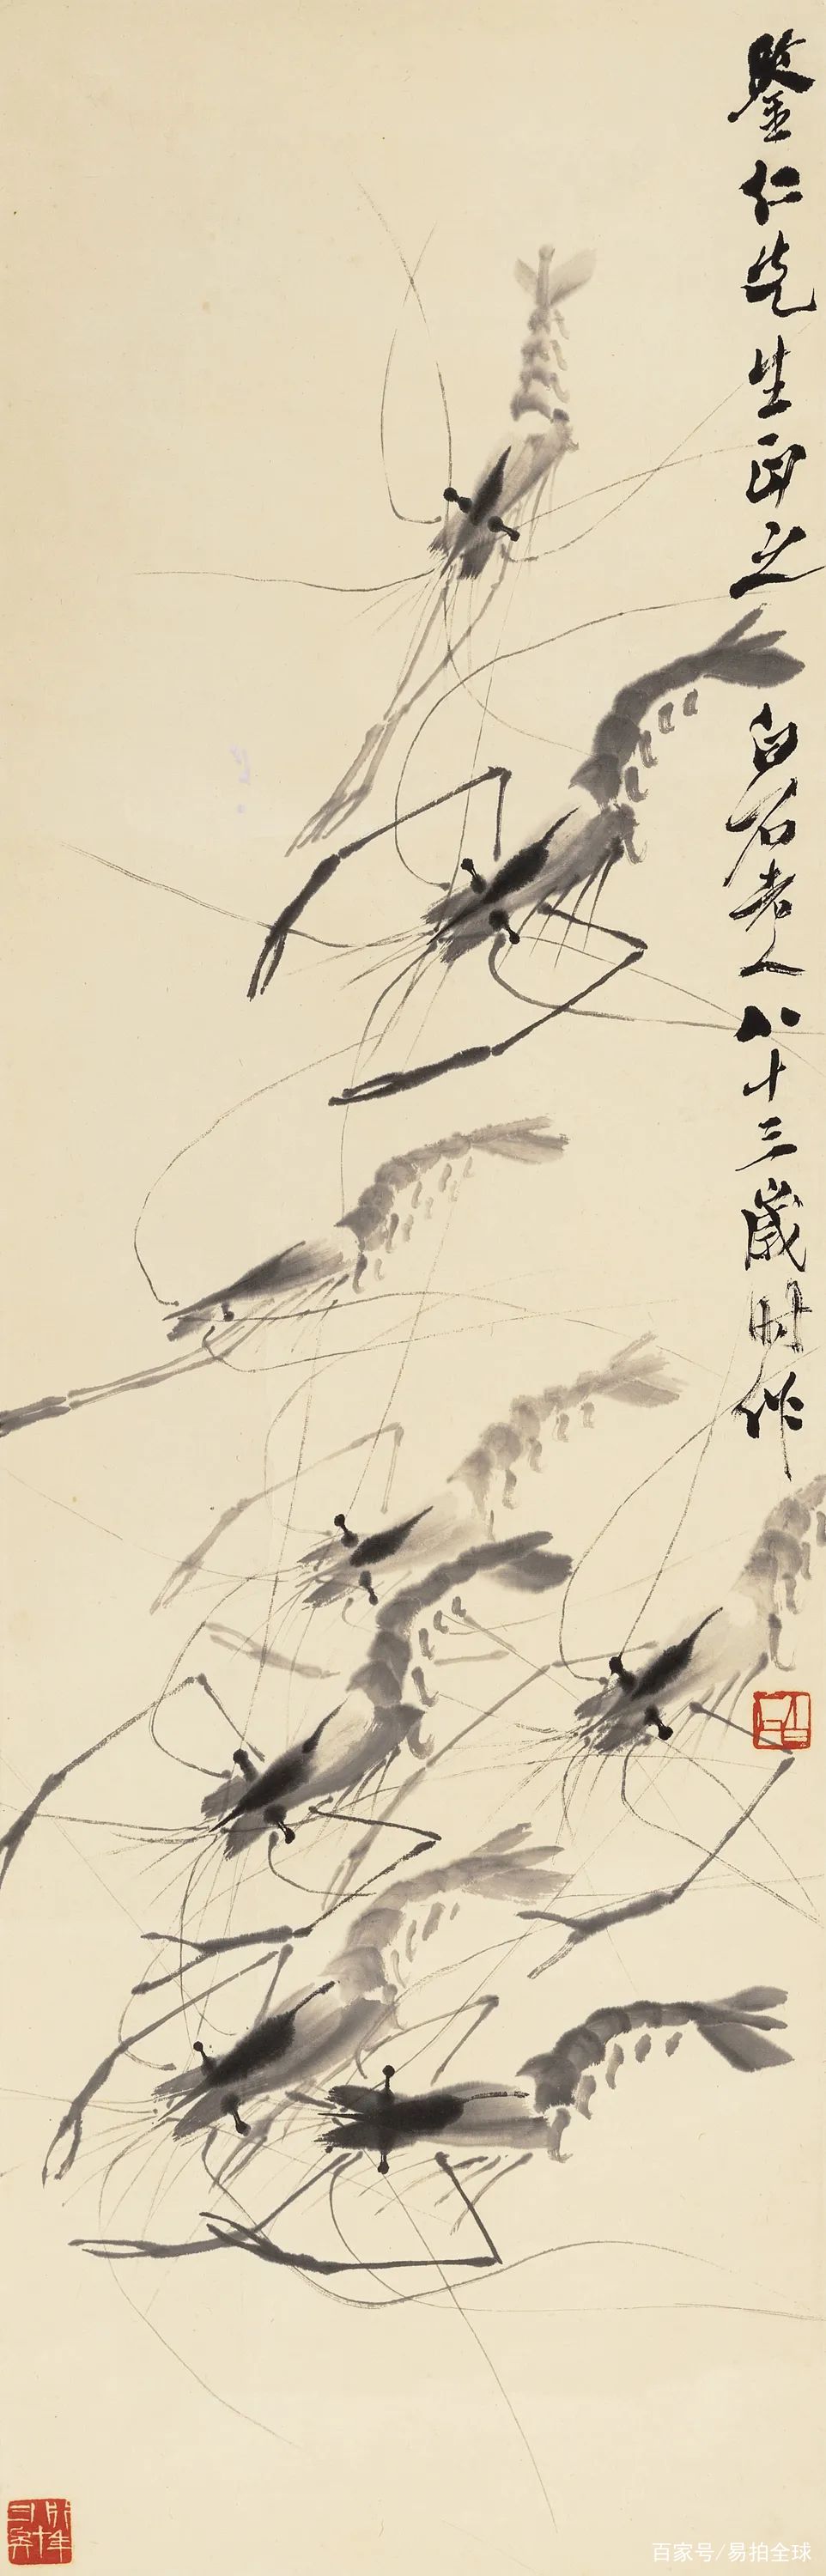 鋻仁先生正之 白石老人八十三歲時作
白石
百家号/易拍全球